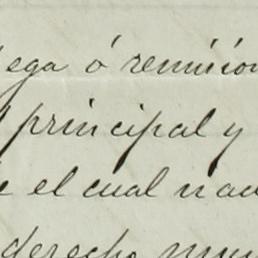 ega ó remisión
principal y
e el cual nac
derecho